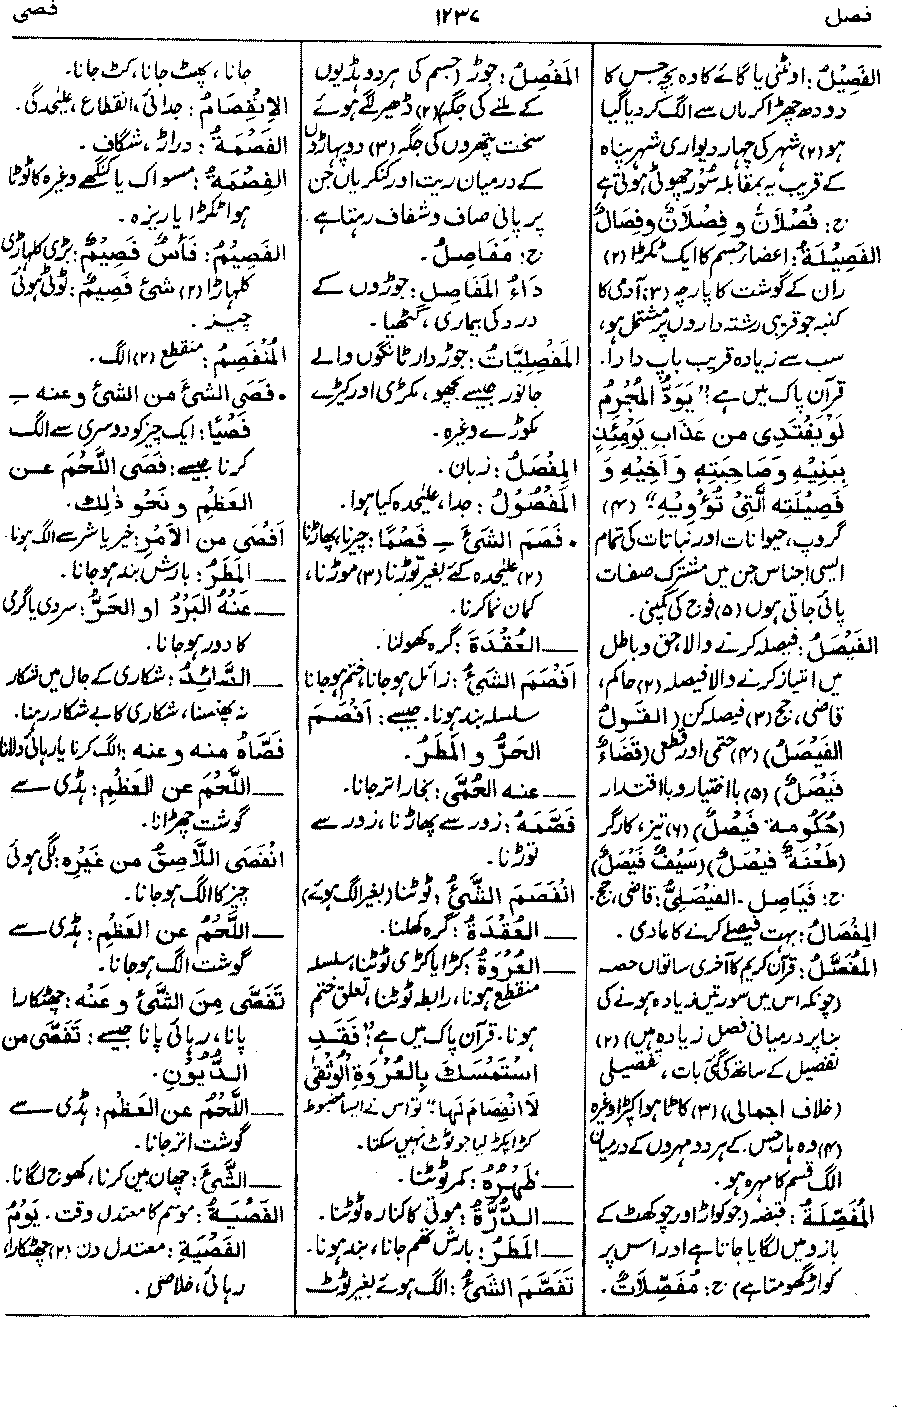 فصل ۱۲۳۷ فصی
الفَصِیْلُ: اونٹنی یا گائے کا وہ بچہ جس کا
دودھ چھڑا کر ماں سے الگ کر دیا گیا
ہو (۲) شہر کی چہار دیواری شہر پناہ
کے قریب یہ بمقابلہ سُوْر چھوٹی ہوتی ہے
ج: فُصْلَانٌ و فِصْلَانٌ وفِصَالٌ
الفَصِیْلَۃُ: اعضاء جسم کا ایک ٹکڑا (۲)
ران کے گوشت کا پارچہ (۳) آدمی کا
کنبہ جو قریبی رشتہ داروں پر مشتمل ہو،
سب سے زیادہ قریب باپ دادا.
قرآن پاک میں ہے "یَوَدُّ المُجْرِمُ
لَوْ یَفْتَدِی مِن عَذَابِ یَوْمَئِذٍ
بِبَنِیْهِ وَصَاحِبَتِهِ وَاَخِیْهِ وَ
فَصِیْلَتِهِ الَّتِیْ تُؤْوِیْهِ" (۴)
گروپ، حیوانات اور نباتات کی تمام
ایسی اجناس جن میں مشترک صفات
پائی جاتی ہوں (۵) فوج کی کمپنی.
الفَیْصَلُ: فیصلہ کرنے والا، حق و باطل
میں امتیاز کرنے والا فیصلہ (۲) حاکم،
قاضی، جج (۳) فیصلہ کن (القَوْلُ
الفَیْصَلُ) (۴) حتمی اور قطعی (قَضَاءٌ
فَیْصَلٌ) (۵) بااختیار و بااقتدار
(حُکُومۃ فَیْصَلٌ) (۶) تیز، کارگر
(طَعْنَۃٌ فَیْصَلٌ) (سَیْفٌ فَیْصَلٌ)
ج: فَیَاصِل. الفَیْصَلِیُّ: قاضی، جج.
المِفْصَالُ: بہت فیصلے کرنے کا عادی.
المُفَصَّلُ: قرآن کریم کا آخری ساتواں حصہ
(چونکہ اس میں سورتیں زیادہ ہونے کی
بنا پر درمیانی فصل زیادہ ہیں) (۲)
تفصیل کے ساتھ کی گئی بات، تفصیلی
(خلاف اجمالی) (۳) کاٹا ہوا کپڑا وغیرہ
(۴) وہ ہار جس کے ہر دو مہروں کے درمیان
الگ قسم کا مہرہ ہو.
المُفَصِّلَۃُ: قبضہ (جو کواڑ اور چوکھٹ کے
بازو میں لگایا جاتا ہے اور اس پر
کواڑ گھومتا ہے) ج: مُفَصِّلَاتٌ.
المَفْصِلُ: جوڑ (جسم کی ہر دو ہڈیوں
کے ملنے کی جگہ (۲) ڈھیر لگے ہوئے
سخت پتھروں کی جگہ (۳) دو پہاڑوں
کے درمیان ریت اور کنکریاں جن
پر پانی صاف و شفاف رہتا ہے.
ج: مَفَاصِلُ.
دَاءُ المَفَاصِلِ: جوڑوں کے
درد کی بیماری، گٹھیا.
المَفْصِلِیَّاتُ: جوڑ دار ٹانگوں والے
جانور جیسے بچھو، مکڑی اور کیڑے
مکوڑے وغیرہ.
المِفْصَلُ: زبان.
المَفْصُولُ: جدا، علیٰحدہ کیا ہوا.
• فَصَمَ الشَیْءَ ــِ فَصْمًا: چیرنا، پھاڑنا
(۲) علیٰحدہ کئے بغیر توڑنا (۳) موڑنا،
کمان نما کرنا.
ــــ العُقْدَۃَ: گرہ کھولنا.
اَفْصَمَ الشَیْءُ: زائل ہو جانا، ختم ہو جانا
سلسلہ بند ہونا. جیسے: اَفْصَمَ
الحَرُّ و المَطَرُ.
ــــ عنه الحُمّٰی: بخار اتر جانا.
فَصَّمَهُ: زور سے پھاڑنا، زور سے
توڑنا.
انْفَصَمَ الشَّیْءُ: ٹوٹنا (بغیر الگ ہوئے)
ــــ العُقْدَۃُ: گرہ کھلنا.
ــــ العُرْوَۃُ: کڑا یا کڑی ٹوٹنا، سلسلہ
منقطع ہونا، رابطہ ٹوٹنا، تعلق ختم
ہونا. قرآن پاک میں ہے "فَقَدِ
اسْتَمْسَكَ بِالْعُرْوَۃِ الْوُثْقٰی
لَا انْفِصَامَ لَهَا" تو اس نے ایسا مضبوط
کڑا پکڑ لیا جو ٹوٹ نہیں سکتا.
ــــ ظَهْرُهُ: کمر ٹوٹنا.
ــــ الدُّرَّۃُ: موتی کا کنارہ ٹوٹنا.
ــــ المَطَرُ: بارش تھم جانا، بند ہونا.
تَفَصَّمَ الشَیْءُ: الگ ہوئے بغیر ٹوٹ
جانا، پھٹ جانا، کٹ جانا.
الاِنْفِصَامُ: جدائی، انقطاع، علیٰحدگی.
الفَصْمَۃُ: دراڑ، شگاف.
الفِصْمَۃُ: مسواک یا گٹھے وغیرہ کا ٹوٹا
ہوا ٹکڑا یا ریزہ.
الفَصِیْمُ: فَأْسٌ فَصِیْمٌ: بڑی کلہاڑی
کلہاڑا (۲) شئ فَصِیمٌ: ٹوٹی ہوئی
چیز.
المُنْفَصِمُ: منقطع (۲) الگ.
• فَصَی الشئَ من الشئ وعنه ــِ
فَصْیًا: ایک چیز کو دوسری سے الگ
کرنا جیسے: فَصَی اللَّحْمَ عن
العَظْمِ و نَحْوِ ذٰلِك.
اَفْصٰی مِن الاَمْرِ: خیر یا شر سے الگ ہونا.
ــــ المَطَرُ: بارش بند ہو جانا.
ــــ عَنْهُ البَرْدُ او الحَرُّ: سردی یا گرمی
کا دور ہو جانا.
ــــ الصَّائِدُ: شکاری کے جال میں شکار
نہ پھنسنا، شکاری کا بے شکار رہنا.
فَصَّاهُ منه و عنه: الگ کرنا یا رہائی دلانا
ــــ اللَّحْمَ عن العَظْمِ: ہڈی سے
گوشت چھڑانا.
انْفَصَی اللَّاصِقُ من غَیْرِهِ: لگی ہوئی
چیز کا الگ ہو جانا.
ــــ اللَّحْمُ عن العَظْمِ: ہڈی سے
گوشت الگ ہو جانا.
تَفَصَّی مِنَ الشَّیْءِ و عَنْهُ: چھٹکارا
پانا، رہائی پانا جیسے: تَفَصَّی من
الدُّیُوْنِ.
ــــ اللَّحْمُ عن العَظْمِ: ہڈی سے
گوشت اتر جانا.
ــــ الشَّیْءَ: چھان بین کرنا، کھوج لگانا.
الفَصْیَۃُ: موسم کا معتدل وقت. یَوْمُ
الفَصْیَۃِ: معتدل دن (۲) چھٹکارا،
رہائی، خلاصی.